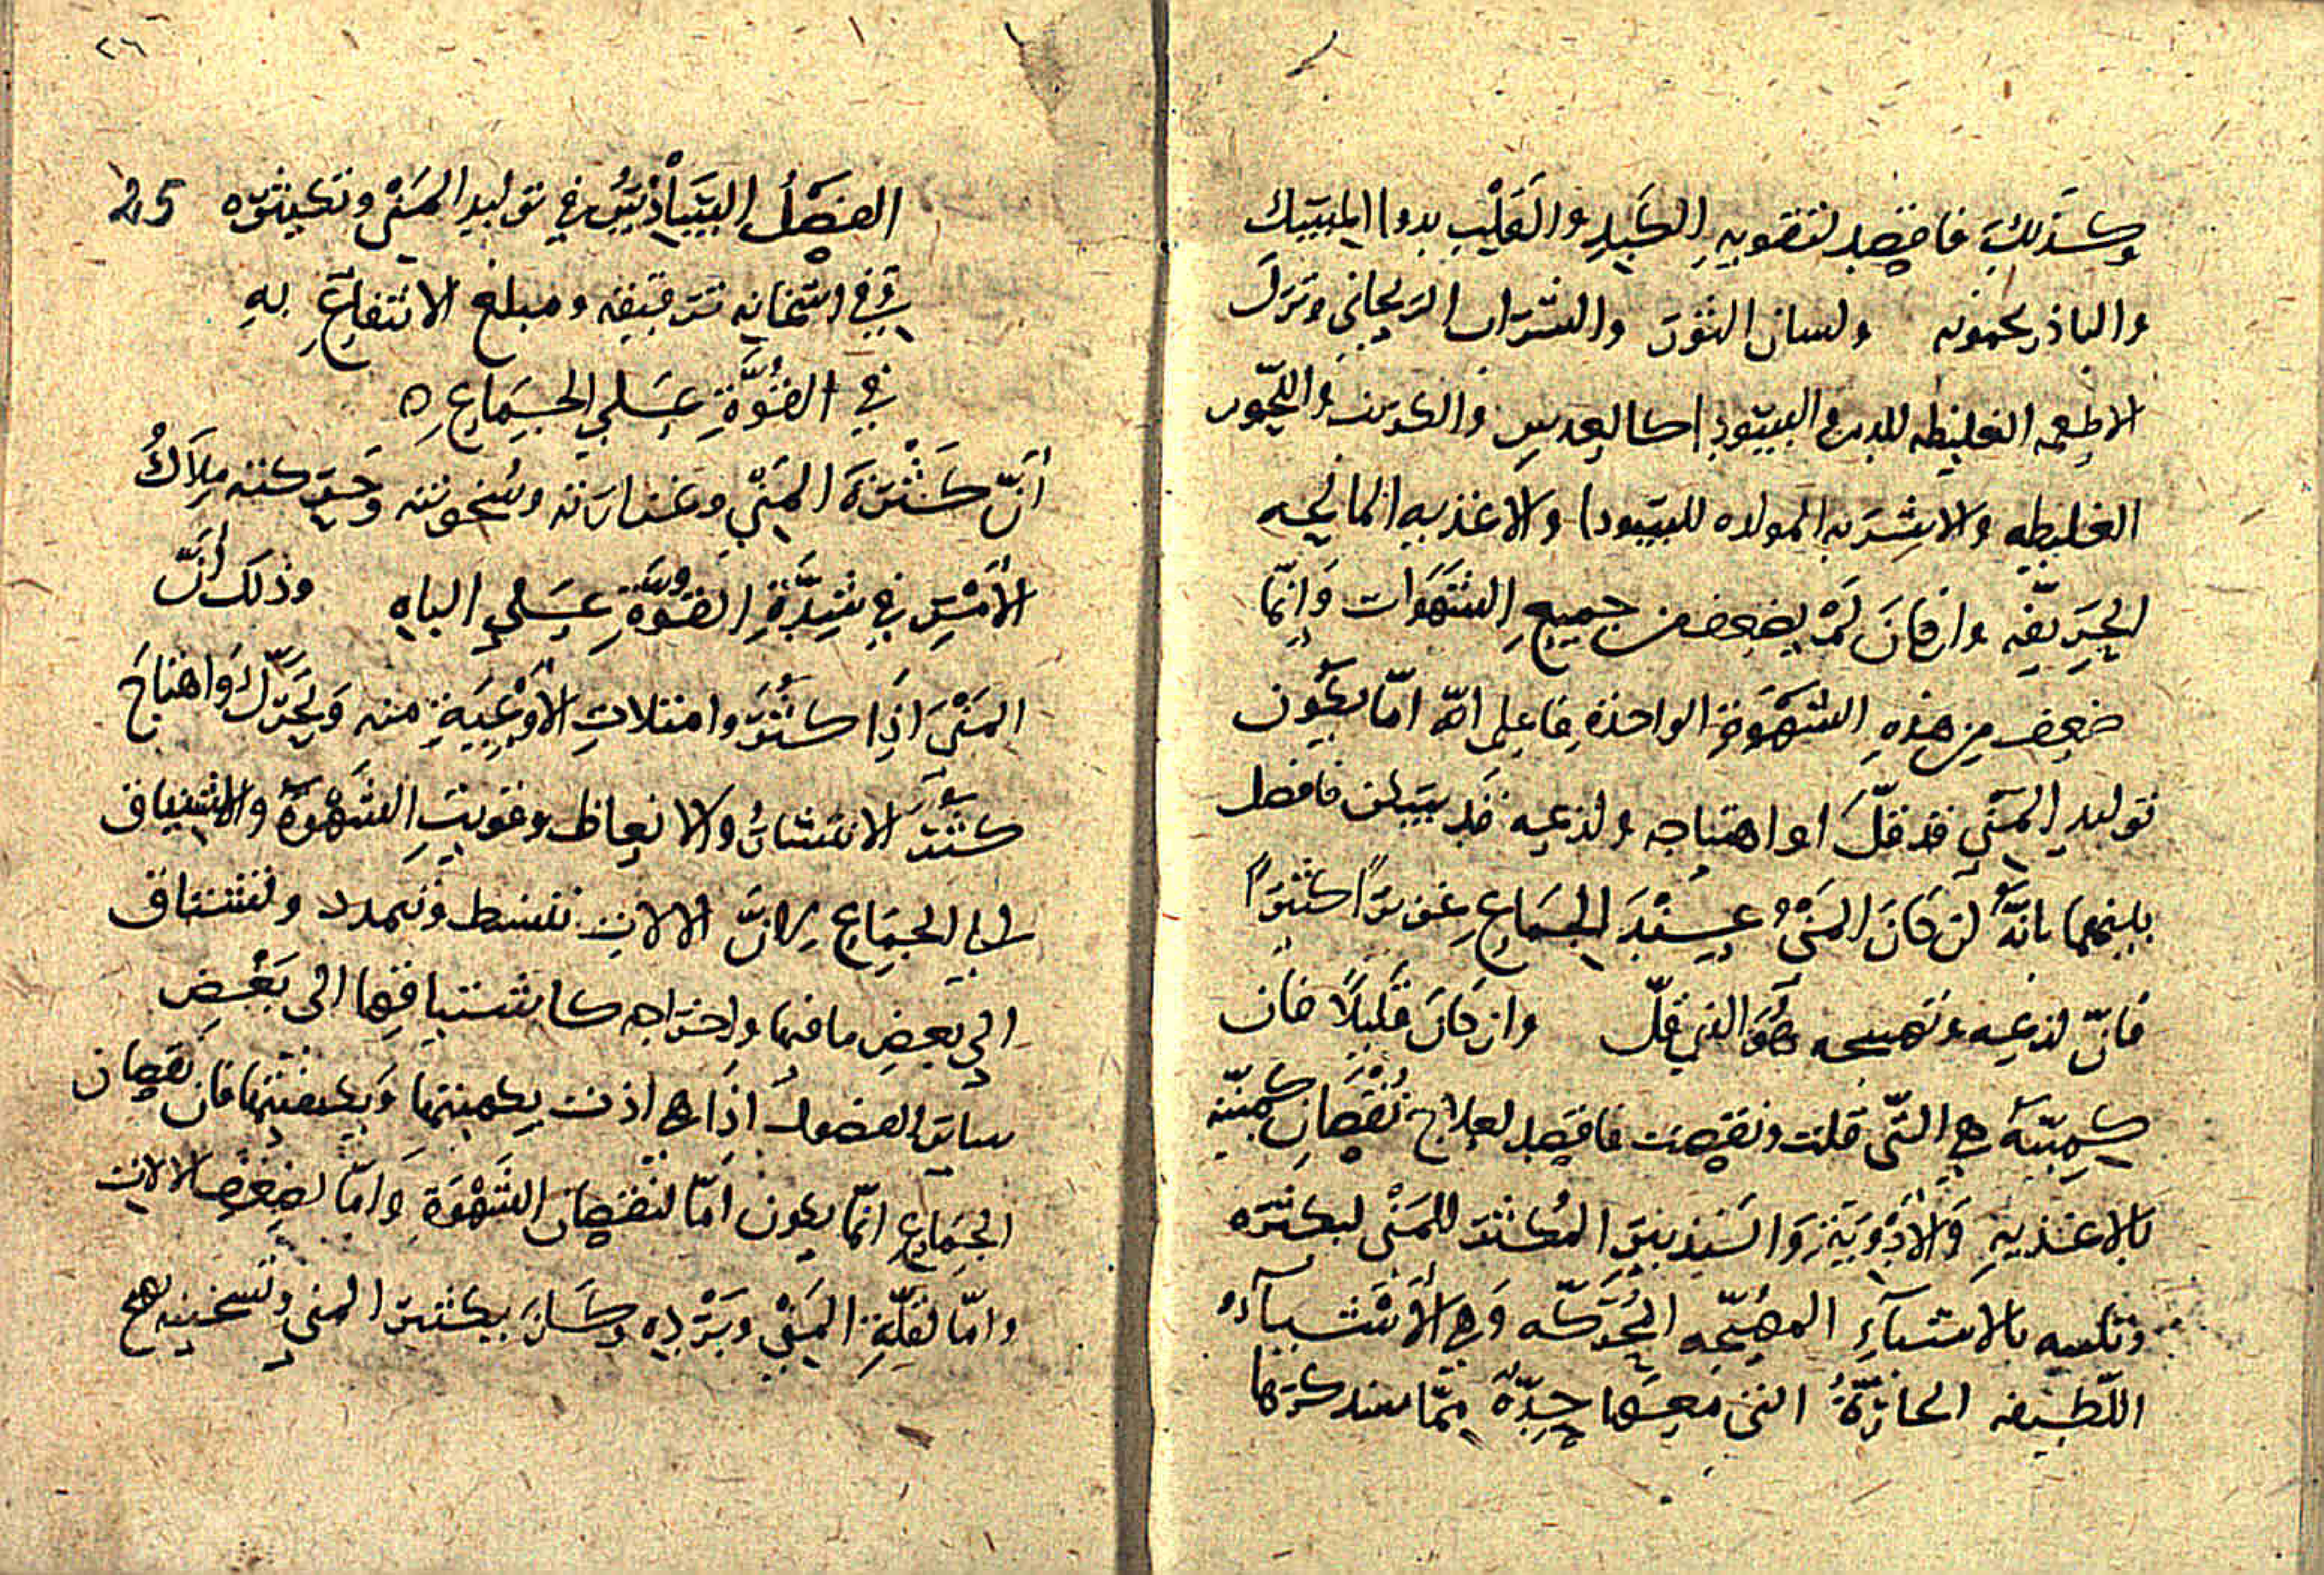 وكذلك فاقصد لتقويه الكبد والقلب بدوا المسك
والباذرنجمونه ولسان الثور والشراب الريحاني وترك
الاطعمه الغليظه المولده السودا كالعدس والكرنب واللحوم
الغليظه والاشربه المولده للسودا والاغذيه المالحه
الحريفه وان كان لم يضعف من جميع الشهوات وانما
ضعف من هذه الشهوة الواحدة فاعلم انه اما يكون
توليد المني قد قل او اهتياجه ولذعه قد سكن فافصل
بينهما بانه لن كان المني عند الجماع غزيرا كثيرا
فان لذعه وتهييجه هو الذي قل وان كان قليلا فان
كميته هي التي قلت ونقصت فاقصد لعلاج نقصان كميته
بالاغذيه والادوية والتدبير المكثر للمني ليكثره
وتلسه بالاشيآء المهيجه المحركه وهي الاشيآء
اللطيفه الحارة التي معها حدة مما سنذكرها
٢٦
الفصل السادس في توليد المني وتكثيره 25
وفي اسخانه ترقيقه ومبلغ الانتفاع به
في القوة على الجماع ه
ان كثرة المني وغزارته وسخونته وحركته ملاك
الامر في شدة القوة على الباه وذلك ان
المني اذا كثر وامتلات الاوعية منه وتحرك واهتاج
كثر الانتشار والانعاظ وقويت الشهوة والاشتياق
الى الجماع لان الالات تنبسط وتمدد وتشتاق
الى بعض ما فيها واخراجه كاشتياقها الى بعض
ساير الفضول اذا هي اذت بكميتها وبكيفيتها فان نقصان
الجماع انما يكون اما لنقصان الشهوة واما لضعف الالات
واما لقلة المني وبرده وكان بكثير المني وتسخينه تهيج